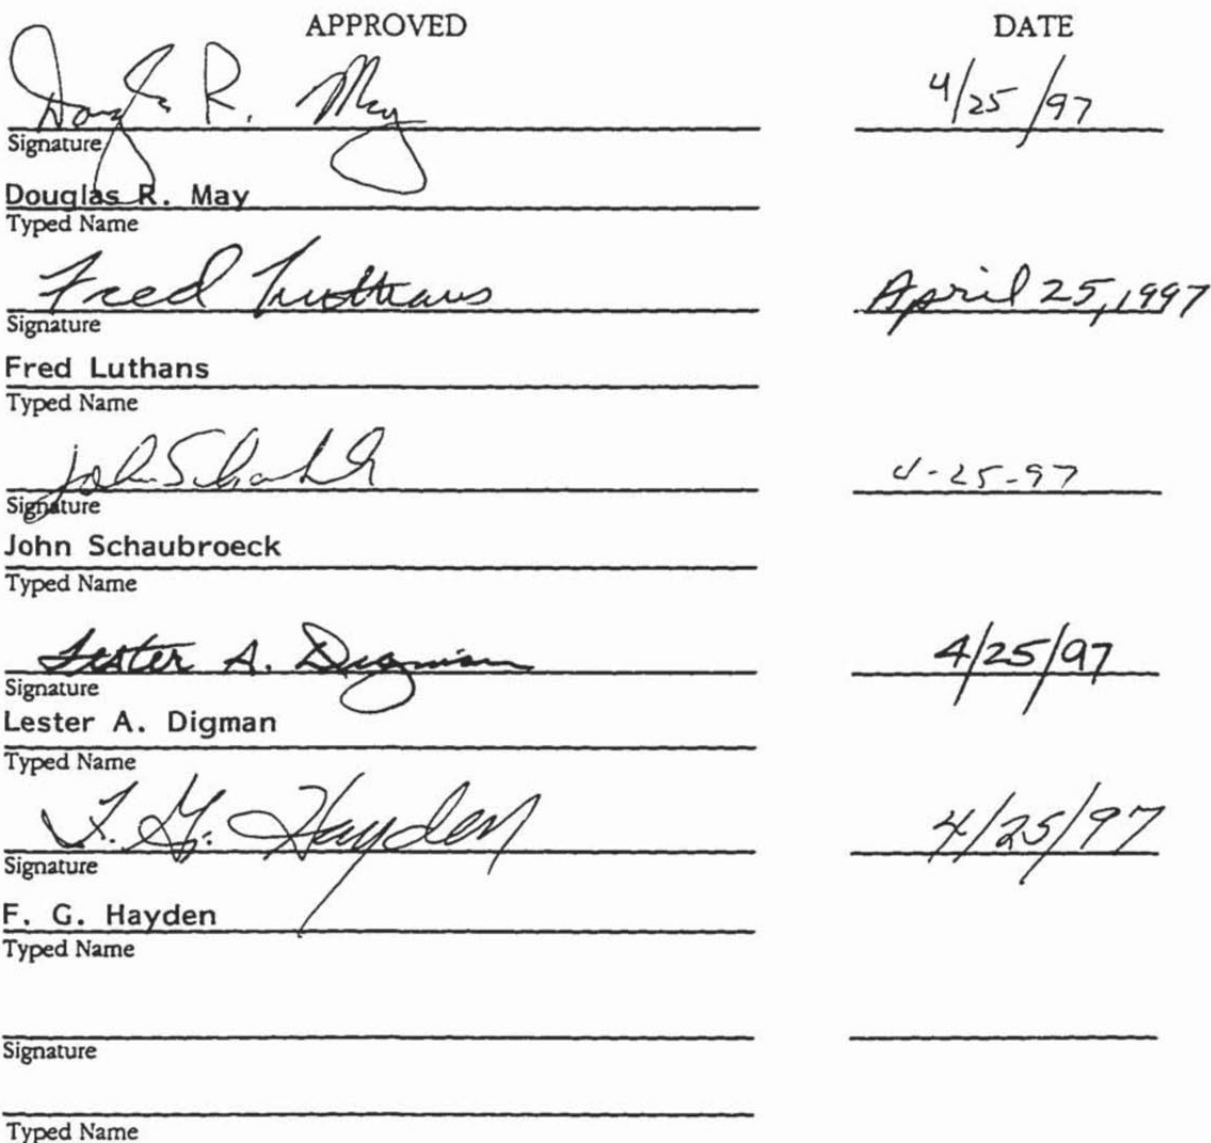 APPROVED DATE
Douglas R. May 4/25/97
Signature
Douglas R. May
Typed Name
Fred Luthans April 25, 1997
Signature
Fred Luthans
Typed Name
John Schaubroeck 4-25-97
Signature
John Schaubroeck
Typed Name
Lester A. Digman 4/25/97
Signature
Lester A. Digman
Typed Name
F. G. Hayden 4/25/97
Signature
F. G. Hayden
Typed Name
Signature
Typed Name